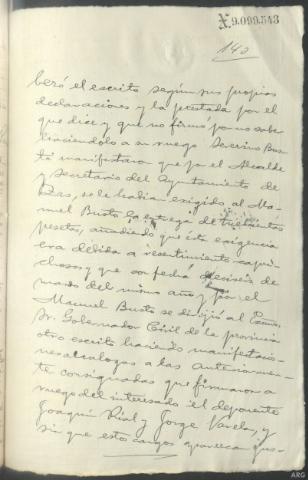 X.9.099.543
140
beró el escrito según sus propias
declaraciones y la prestada por el
que dice y que no firmó por no saber
haciéndolo a su ruego Severino Bus
to manifestaron que por el Alcalde
y Secretario del Ayuntamiento de
se le habian exigido al Ma-
nuel Busto la entrega de trescientas
pesetas, añadiendo que ésta exigencia
era debida a resentimiento
y que con fecha dieciseis de
marzo del mismo año y por el
Manuel Busto se dirijió al Excmo.
Sr. Gobernador Civil de la provincia
otro escrito haciendo manifestacio-
nes analogas a las anteriormen-
te consignadas que firmaron a
ruego del interesado el deponente
Joaquin Rial y Jorge Varela, y
sin que estos cargos aparezcan jus-
ARG